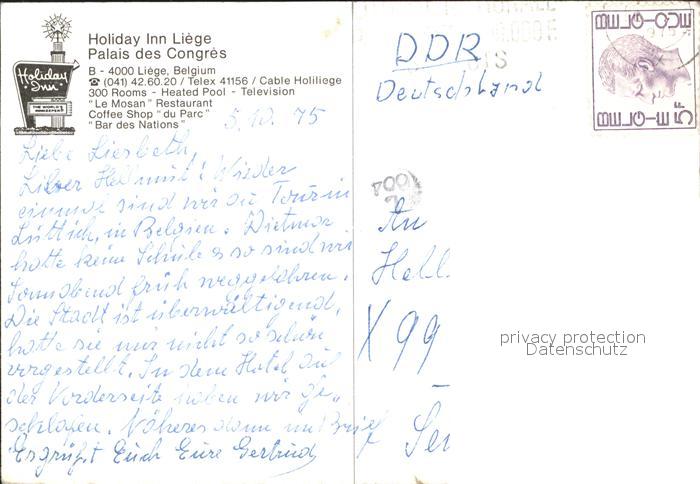 Holiday Inn Liège
Palais des Congrès
B - 4000 Liège, Belgium
☎ (041) 42.60.20 / Telex 41156 / Cable Holiliege
300 Rooms - Heated Pool - Television
"Le Mosan" Restaurant
Coffee Shop "du Parc"
"Bar des Nations"
Holiday
Inn
5.10.75
Liebe Liesbeth,
Lieber Hellmut! Wieder
einmal sind wir auf Tour in
Lüttich, in Belgien. Dietmar
hatte keine Schule so sind wir
Sonnabend früh weggefahren.
Die Stadt ist überwältigend,
hatte sie mir nicht so schön
vorgestellt. In dem Hotel auf
der Vorderseite haben wir ge-
schlafen. Näheres dann im Brief
Es grüßt Euch Eure Gertrud
DDR
Deutschland
BELGIQUE
BELGIE 5F
400
An
Hell
X 99
Ser
privacy protection
Datenschutz